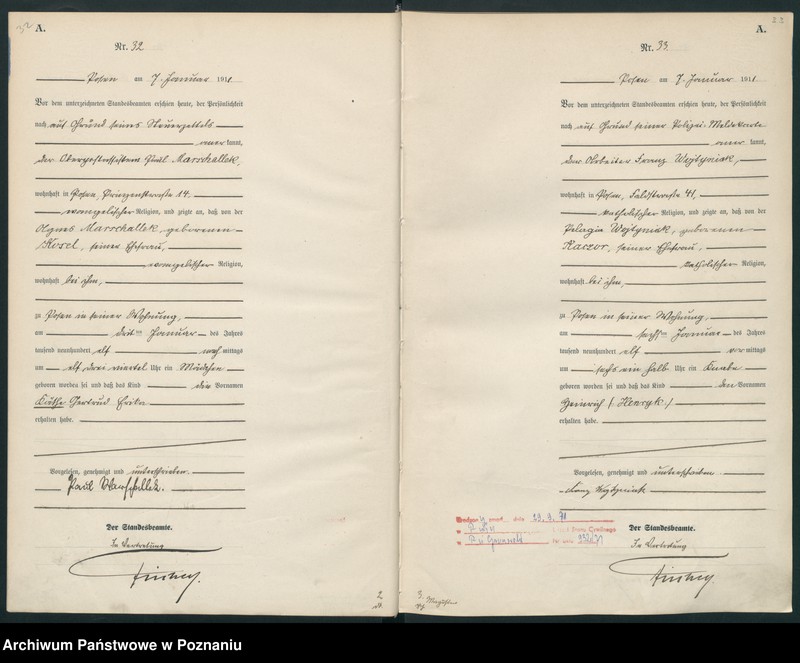 32
A.
Nr. 32
Posen am 7. Januar 1911.
Vor dem unterzeichneten Standesbeamten erschien heute, der Persönlichkeit
nach auf Grund seines Steuerzettels
anerkannt,
der Oberpostassistent Paul Marschallek,
wohnhaft in Posen, Prinzenstraße 14.
evangelischer Religion, und zeigte an, daß von der
Agnes Marschallek, geborenen
Kosel, seiner Ehefrau,
evangelischer Religion,
wohnhaft bei ihm,
zu Posen in seiner Wohnung,
am dritten Januar des Jahres
tausend neunhundert elf nachmittags
um elf drei viertel Uhr ein Mädchen
geboren worden sei und daß das Kind die Vornamen
Käthe Gertrud Erika
erhalten habe.
Vorgelesen, genehmigt und unterschrieben.
Paul Marschallek.
Der Standesbeamte.
In Vertretung
A.
Nr. 33
Posen am 7. Januar 1911.
Vor dem unterzeichneten Standesbeamten erschien heute, der Persönlichkeit
nach auf Grund seiner Polizei-Meldekarte
anerkannt,
der Arbeiter Franz Wojtyniak,
wohnhaft in Posen, Feldstraße 41,
katholischer Religion, und zeigte an, daß von der
Pelagia Wojtyniak, geborenen
Kaczor, seiner Ehefrau,
katholischer Religion,
wohnhaft bei ihm,
zu Posen in seiner Wohnung,
am sechsten Januar des Jahres
tausend neunhundert elf vormittags
um sechs ein halb Uhr ein Knabe
geboren worden sei und daß das Kind den Vornamen
Heinrich (Henryk)
erhalten habe.
Vorgelesen, genehmigt und unterschrieben
Franz Wojtyniak
Der Standesbeamte.
In Vertretung
Archiwum Państwowe w Poznaniu